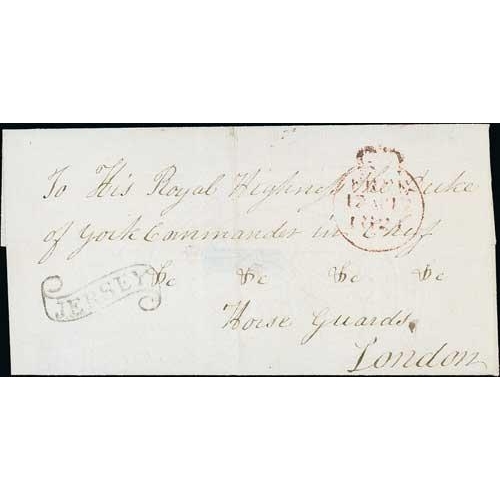 To His Royal Highness the Duke
of York Commander in Chief
&c &c &c &c
Horse Guards
London
JERSEY
FREE